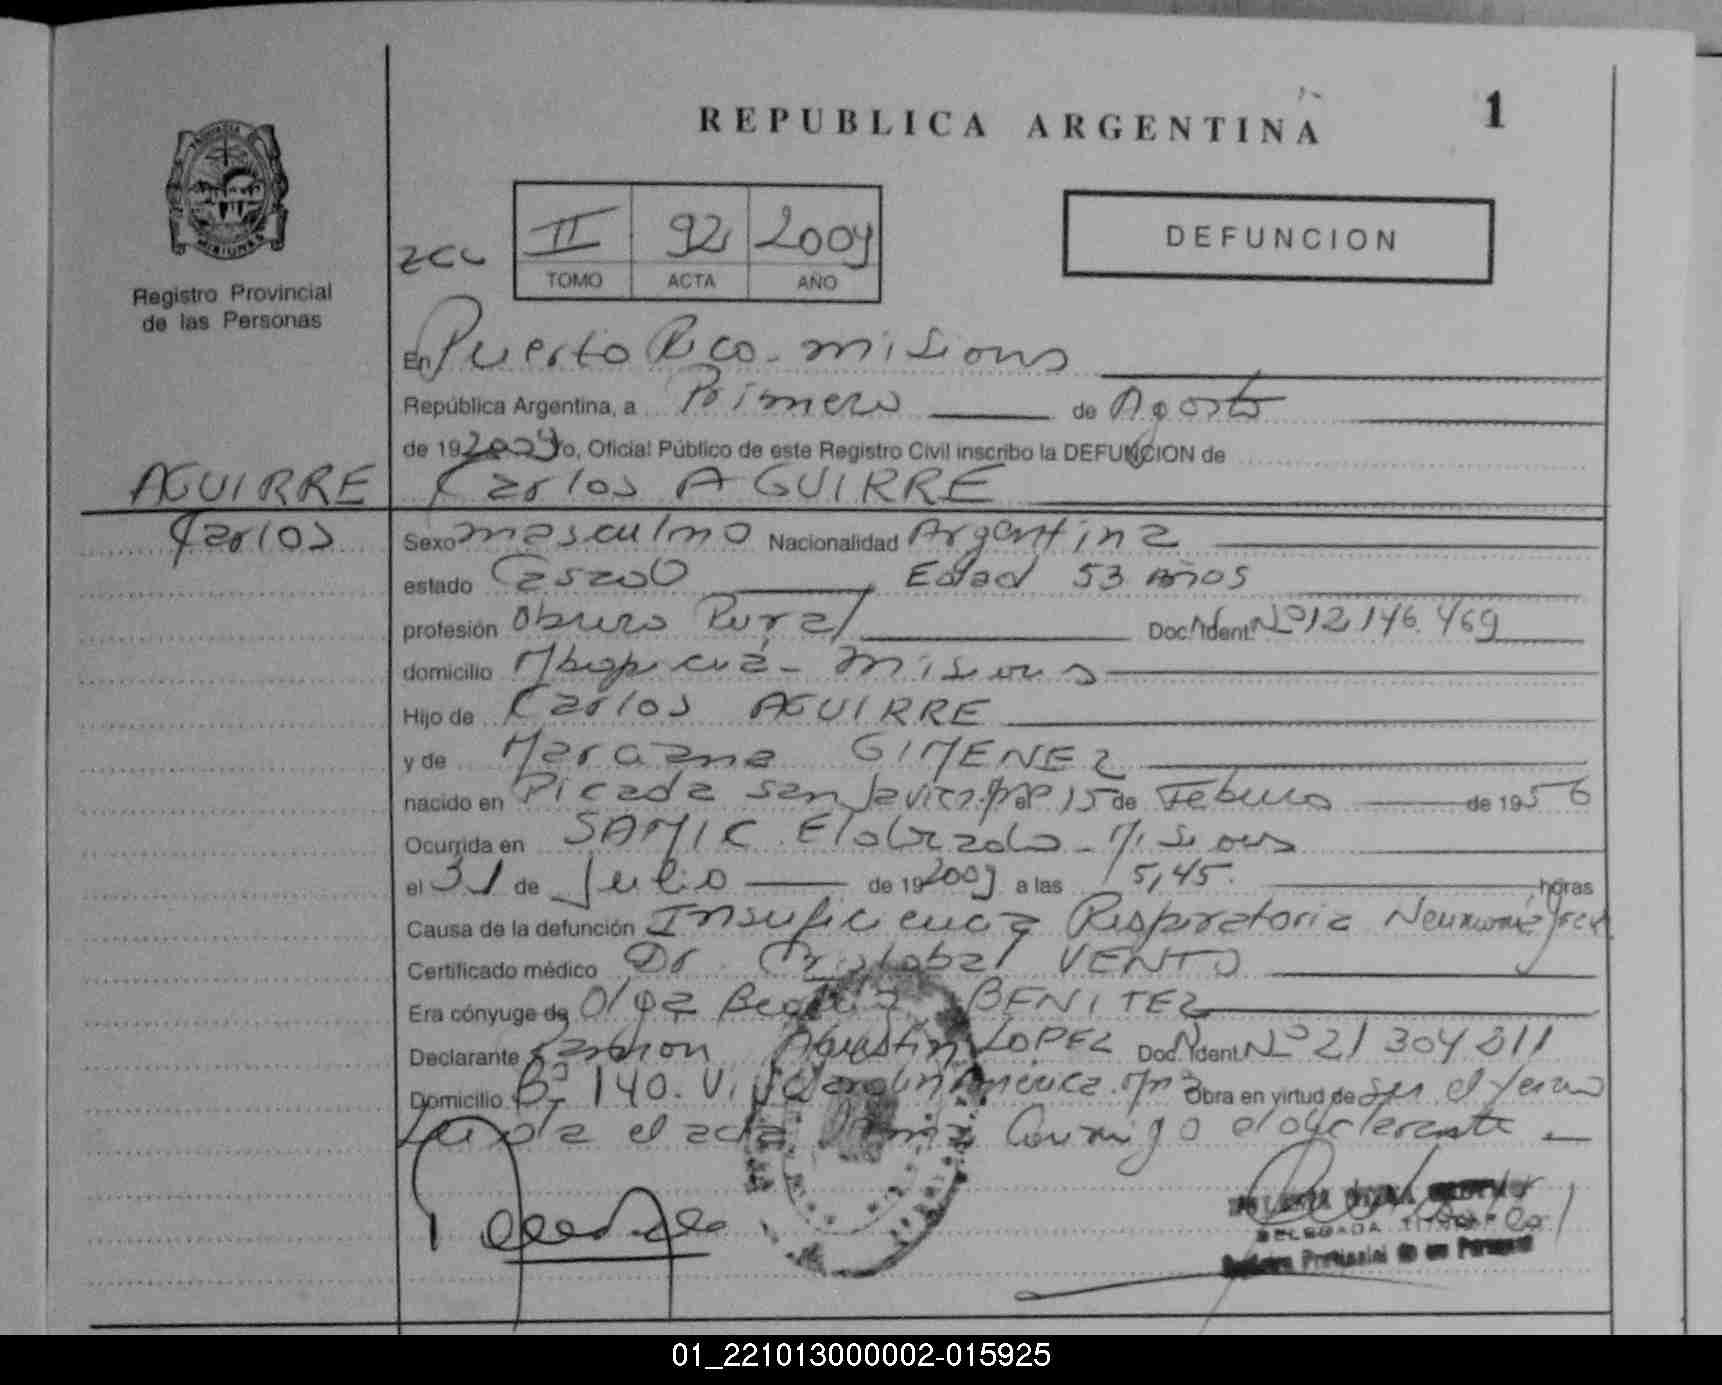 REPUBLICA ARGENTINA 1
PROVINCIA DE MISIONES
Registro Provincial
de las Personas
II 92 2009
TOMO ACTA AÑO
DEFUNCION
En Puerto Rico - misiones
República Argentina, a Primero de Agosto
de 19 2009 Yo, Oficial Público de este Registro Civil inscribo la DEFUNCION de
AGUIRRE Carlos AGUIRRE
Carlos
Sexo masculino Nacionalidad Argentina
estado Casado Edad 53 años
profesión Obrero Rural Doc. Ident. Nº 12 146.469
domicilio Mbopicuá - Misiones
Hijo de Carlos AGUIRRE
y de GIMENEZ
nacido en Picada San Javier el 15 de Febrero de 1956
Ocurrida en SAMIC Eldorado - Misiones
el 31 de Julio de 19 2009 a las 5,45 horas
Causa de la defunción Insuficiencia Respiratoria
Certificado médico Dr. Cristobal VENTO
Era cónyuge de Olga Beatriz BENITEZ
Declarante Ramon Agustin LOPEZ Doc. Ident. Nº 21 304 811
Domicilio Bº 140. Obra en virtud de ser el yerno
Leida el acta firma conmigo el declarante
DELEGADA TITULAR
Registro Provincial de las Personas
01_221013000002-015925